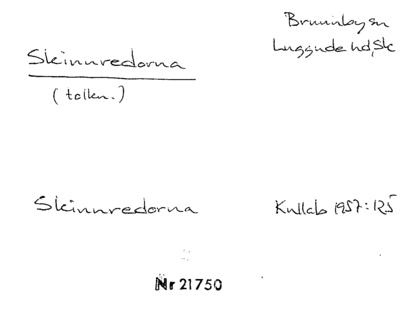 Brunnby sn
Luggude hd, Sk
Skinnredorna
(tolkn.)
Skinnredorna
Kullab 1957:125
Nr 21750